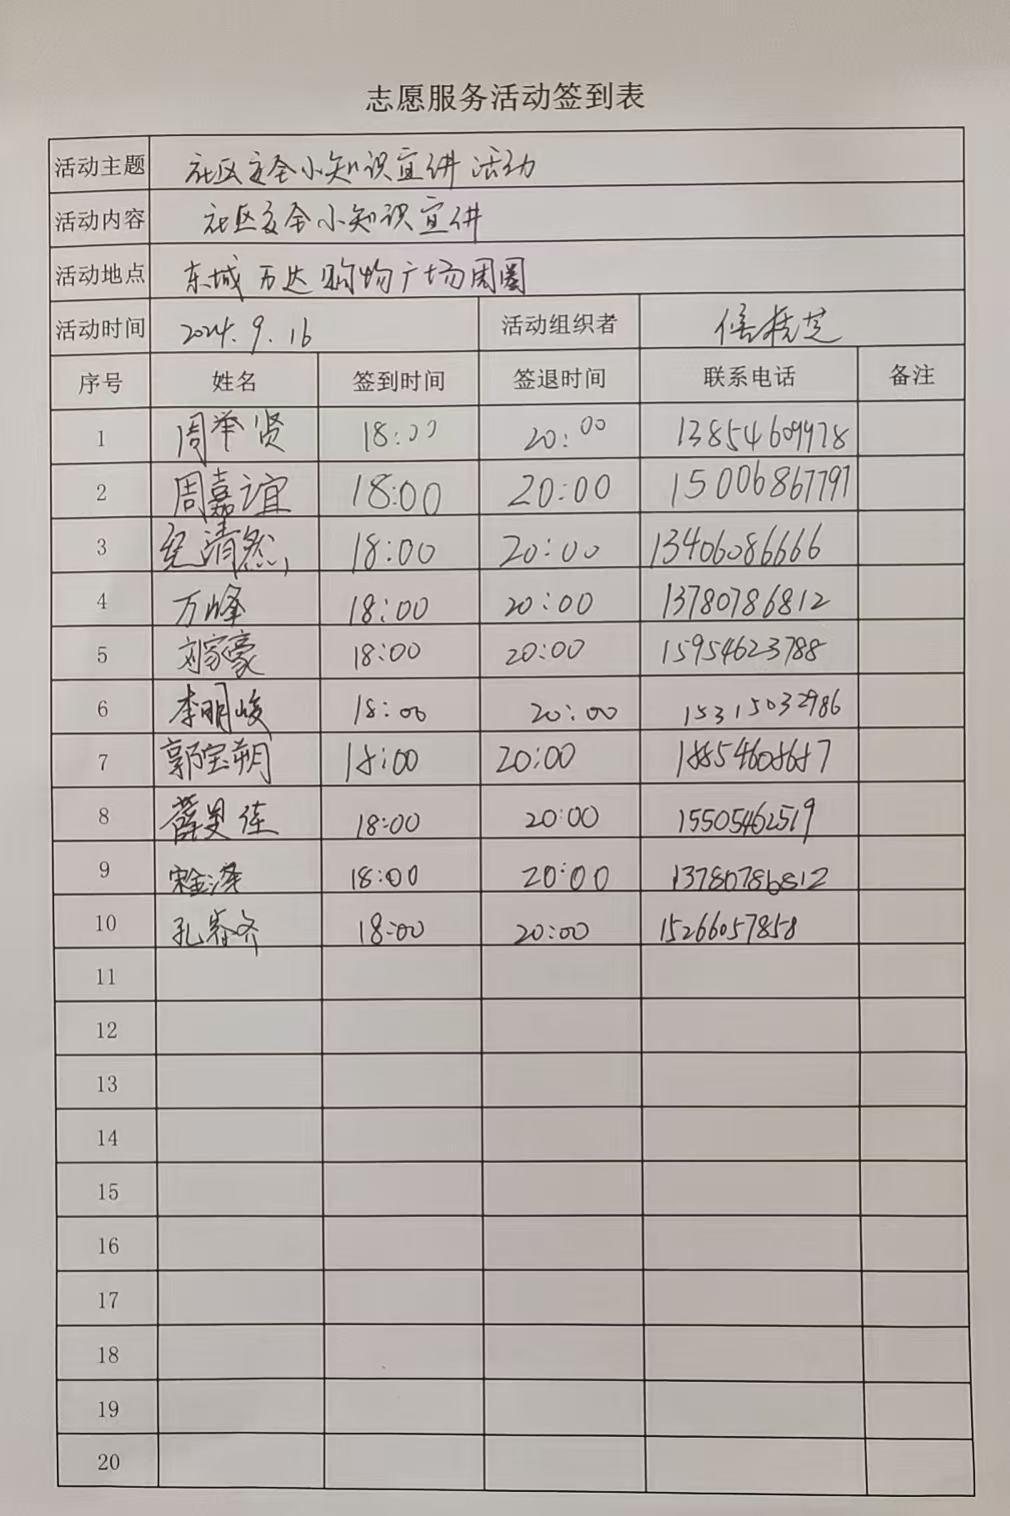 志愿服务活动签到表
活动主题 社区安全小知识宣讲活动
活动内容 社区安全小知识宣讲
活动地点 东城万达购物广场周围
活动时间 2024.9.16 活动组织者
序号 姓名 签到时间 签退时间 联系电话 备注
1 周举贤 18:00 20:00 13854609978
2 周嘉谊 18:00 20:00 15006867797
3 纪清然 18:00 20:00 13406086666
4 万峰 18:00 20:00 13780786812
5 刘家豪 18:00 20:00 15954623788
6 李明峻 18:00 20:00 15315032986
7 郭宝朔 18:00 20:00 18854608687
8 18:00 20:00 15505462519
9 宋金泽 18:00 20:00 13780786812
10 18:00 20:00 15266057858
11
12
13
14
15
16
17
18
19
20